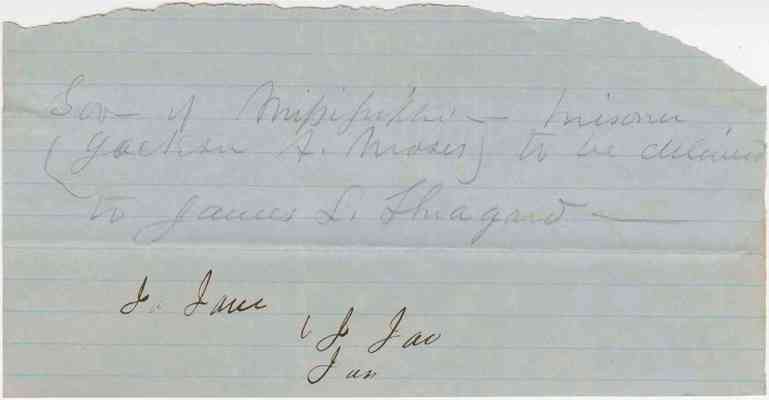 Gov of Mississippi — prisoner
(Jackson A. Moses) to be delivered
to James L. Thragard —
J. Jame
J. Jac
Jan